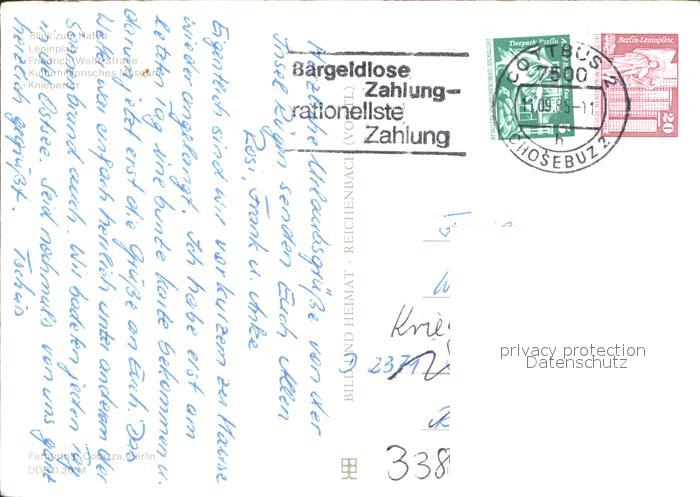 Blick zum Hafen
Leninplatz
Friedrich-Wolf-Straße
Kulturhistorisches Museum
Kniepertor
Herzliche Urlaubsgrüße von der
Insel Rügen senden Euch Allen
Rosi, Frank u. Anke
Eigentlich sind wir vor kurzem zu Hause
wieder angelangt. Ich habe erst am
letzten Tag eine bunte Karte bekommen u.
darum jetzt erst die Grüße an Euch. Das
Wetter war einfach herrlich unter anderem der
Sonnenbrand auch. Wir badeten jeden Tag
in der Ostsee. Seid nochmals von uns ganz
herzlich gegrüßt. Tschüs
Farbfotos: Corazza, Berlin
DDR 0,20 M
BILD UND HEIMAT · REICHENBACH (VOGTL)
Bargeldlose
Zahlung–
rationellste
Zahlung
Tierpark Berlin
COTTBUS 2
7500
11.09.85-11
h
CHOŚEBUZ 2
Berlin-Leninplatz
20
Krie
2371
338
privacy protection
Datenschutz